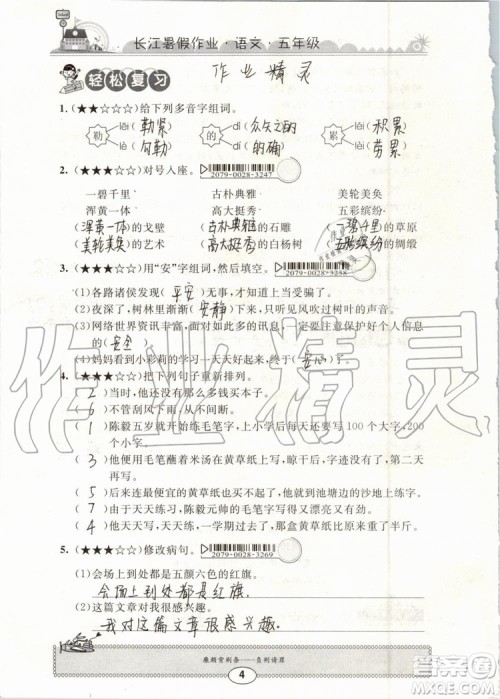 长江暑假作业·语文·五年级
轻松复习 作业精灵
1.(★★☆☆☆)给下列多音字组词。
lēi(勒紧) dì(众矢之的) lěi(积累)
勒 的 累
lè(勾勒) dí(的确) lèi(劳累)
2.(★★★☆☆)对号入座。 2079-0028-3247
一碧千里 古朴典雅 美轮美奂
浑黄一体 高大挺秀 五彩缤纷
(浑黄一体)的戈壁 (古朴典雅)的石雕 (一碧千里)的草原
(美轮美奂)的艺术 (高大挺秀)的白杨树 (五彩缤纷)的绸缎
3.(★★★☆☆)用“安”字组词，然后填空。 2079-0028-3258
(1)各路诸侯发现(平安)无事，才知道是上当受骗了。
(2)夜深了，树林里渐渐(安静)了，只听见风吹过树叶的声音。
(3)网络世界资讯丰富，面对如此多的讯息，一定要注意
(安全)
(4)妈妈看到小彩莉的学习一天天进步，终于(安心)了。
4.(★★★☆☆)把下列句子重新排列。
(2)当时，他还小，又没有钱买纸。
(6)不管刮风下雨，从不间断。
(1)陈毅五岁就开始练毛笔字，每天都要写100个大字，200
个小字。
(3)他便用毛笔蘸着米汤在黄草纸上写，晾干后，字迹淡了，第二天
再写。
(5)后来连最便宜的黄草纸也买不起了，他就到池塘边的沙地上练字。
(7)陈毅元帅的毛笔字写得那样好，是他从小勤学苦练的结果。
(4)他天天写，天天练，一个学期下来，黄草纸重了近半斤。
5.(★★★☆☆)修改病句。 2079-0028-3269
(1)会场上到处都是五颜六色的红旗。
会场上到处都是红旗.
(2)这篇文章对我很感兴趣。
我对这篇文章很感兴趣
廉颇背荆条——负荆请罪
4
作业精灵
答案圈
MXQE.COM